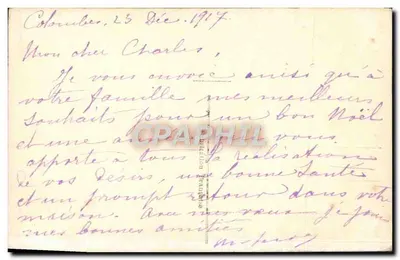 Colombes, 25 Déc. 1917
Mon cher Charles,
Je vous envoie ainsi qu'à
votre famille mes meilleurs
souhaits pour un bon Noël
et une vous
apporte à tous la réalisation
de vos désirs, une bonne santé
et un prompt retour dans votre
maison. Avec mes vœux je joins
mes bonnes amitiés
CPARAMA